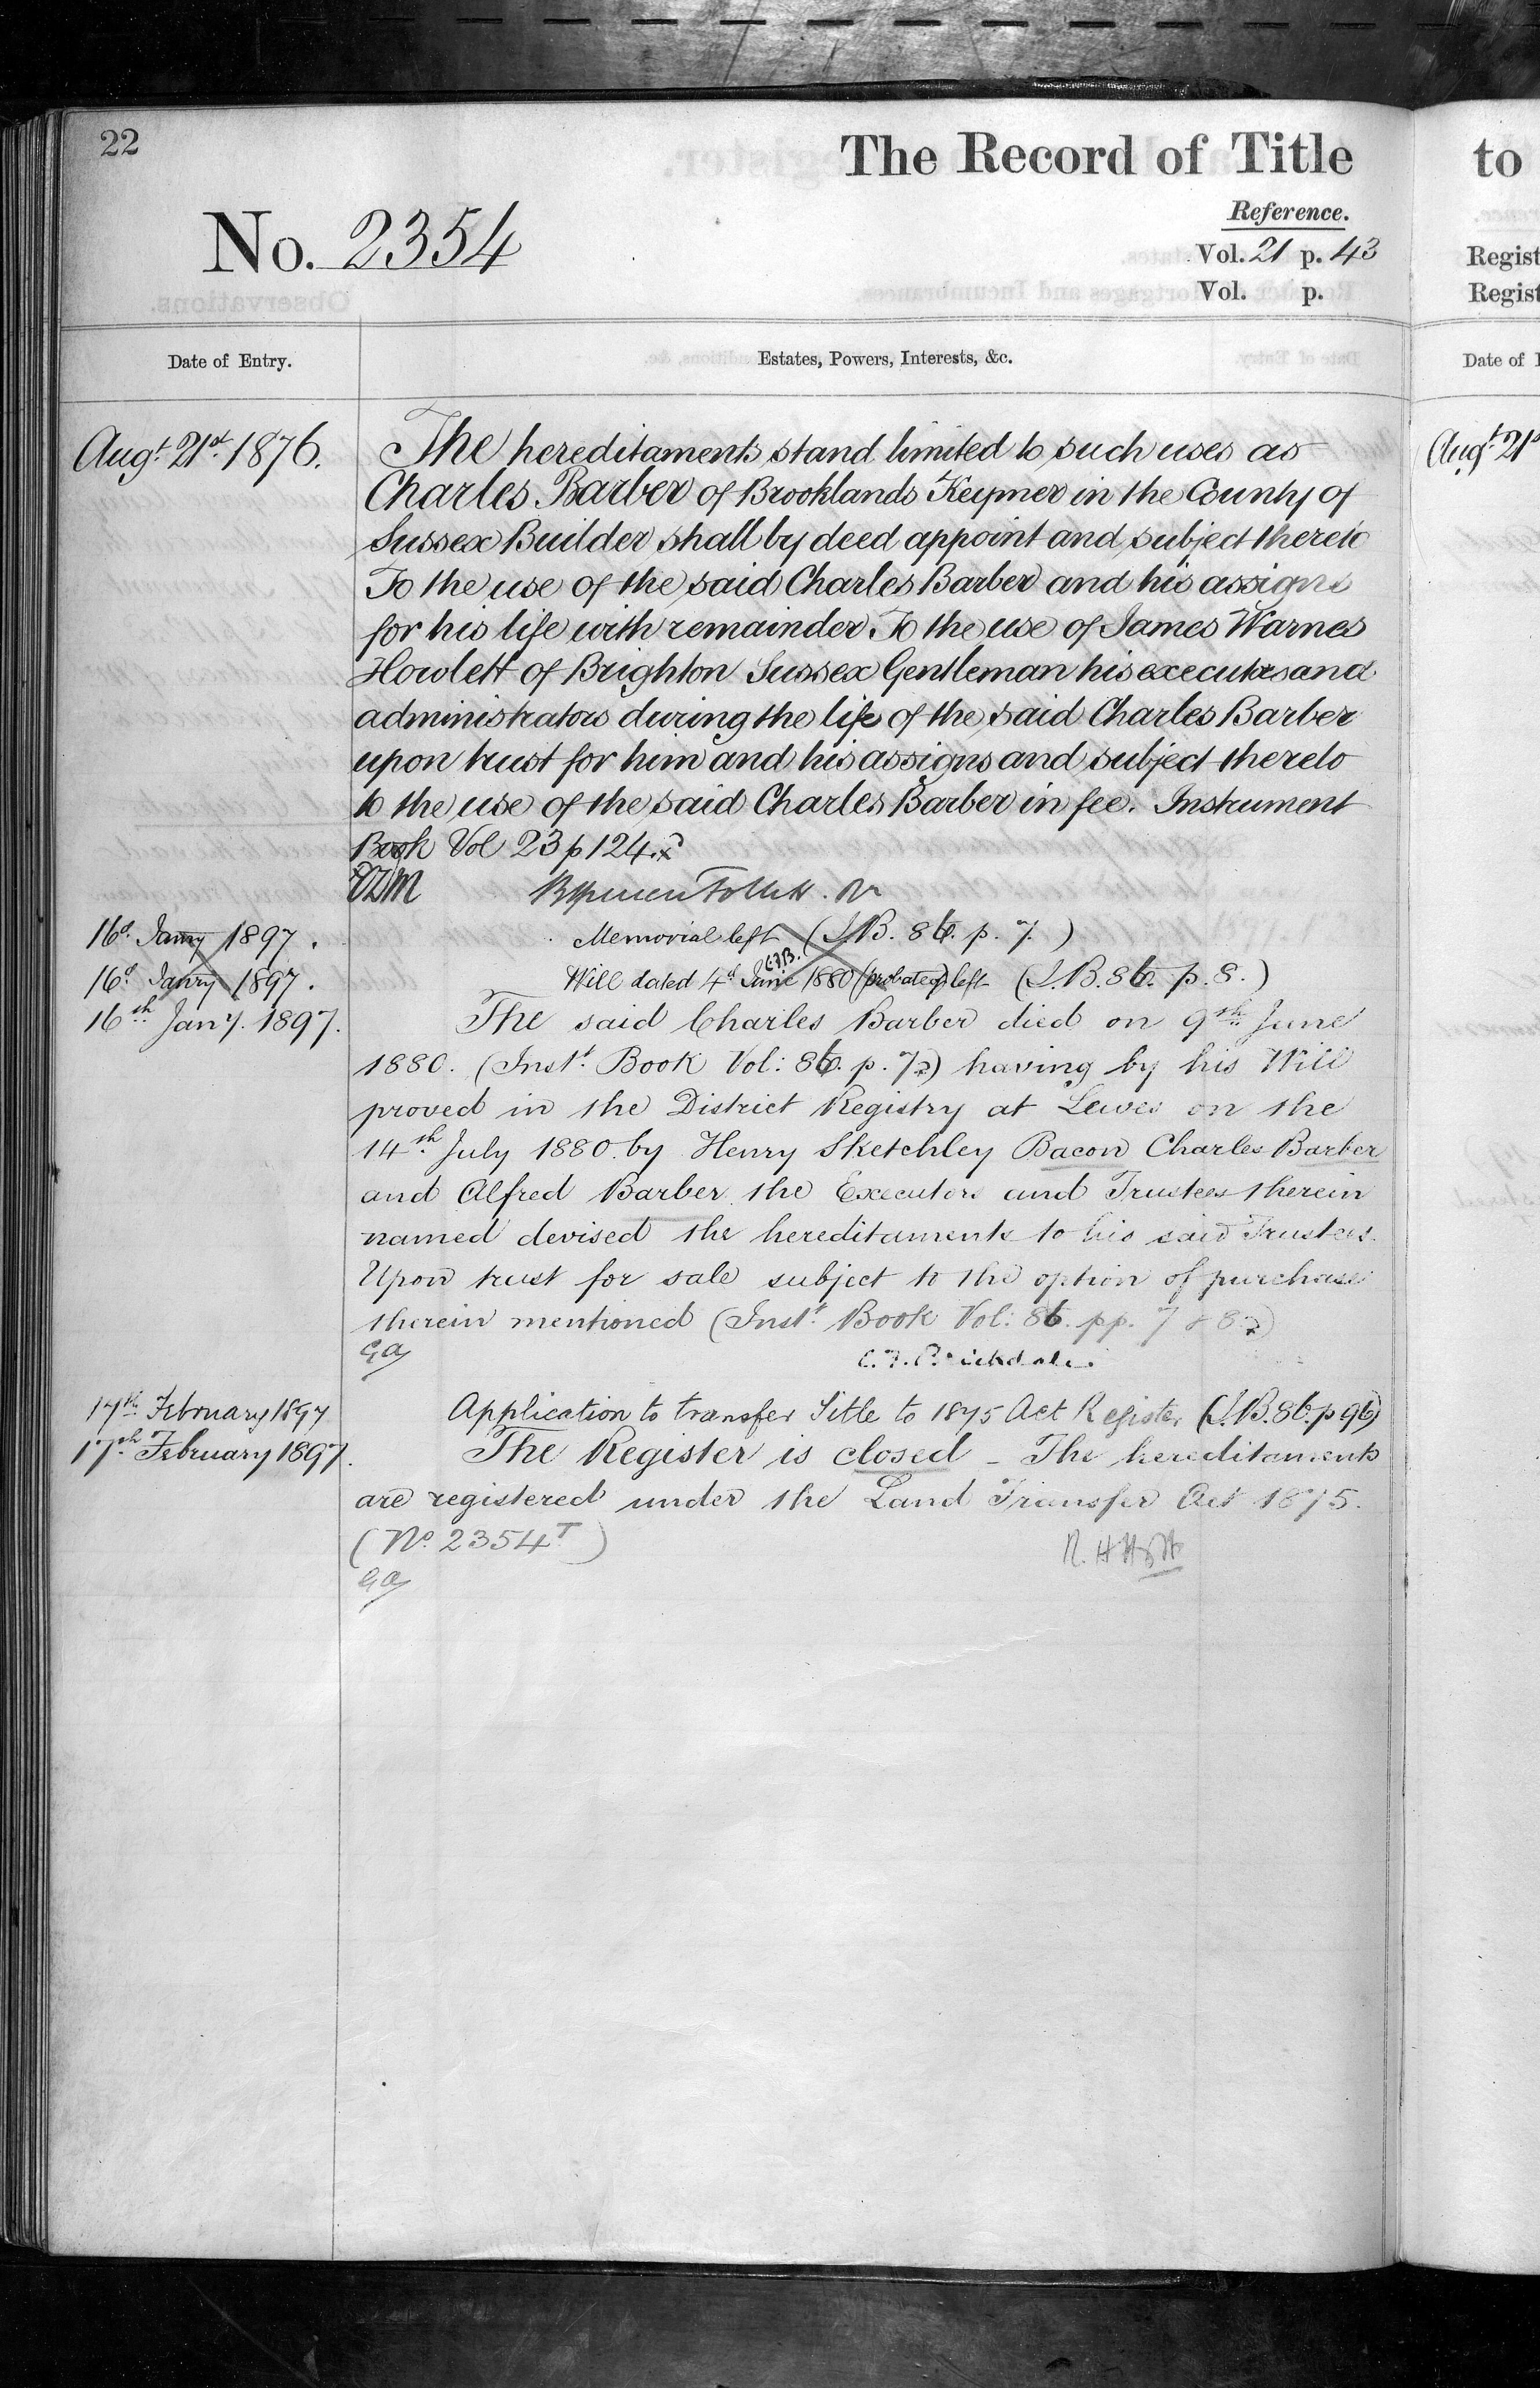 22
The Record of Title
Reference.
No. 2354
Vol. 21 p. 43
Vol. p.
Date of Entry.
Estates, Powers, Interests, &c.
Augt. 21st 1876.
The hereditaments stand limited to such uses as
Charles Barber of Brooklands Keymer in the County of
Sussex Builder shall by deed appoint and subject thereto
To the use of the said Charles Barber and his assigns
for his life with remainder To the use of James Warnes
Howlett of Brighton Sussex Gentleman his executors and
administrators during the life of the said Charles Barber
upon trust for him and his assigns and subject thereto
to the use of the said Charles Barber in fee. Instrument
Book Vol 23 p 124.
16th Janry 1897.
Memorial left (I.B. 86. p. 7.)
C.F.B.
16th Janry 1897.
Will dated 4th June 1880 (probated) left (I.B. 86. p. 8.)
16th Jany. 1897.
The said Charles Barber died on 9th June
1880. (Instt. Book Vol: 86. p. 7) having by his Will
proved in the District Registry at Lewes on the
14th July 1880 by Henry Sketchley Bacon Charles Barber
and Alfred Barber the Executors and Trustees therein
named devised the hereditaments to his said Trustees.
Upon trust for sale subject to the option of purchase
therein mentioned (Instt. Book Vol: 86. pp. 7 & 8)
C.F. Brickdale.
17th February 1897
Application to transfer Title to 1875 Act Register (I.B. 86. p 96)
17th February 1897.
The Register is closed - The hereditaments
are registered under the Land Transfer Act 1875.
(No. 2354T)
to
Regist
Regist
Date of
Augt 21st